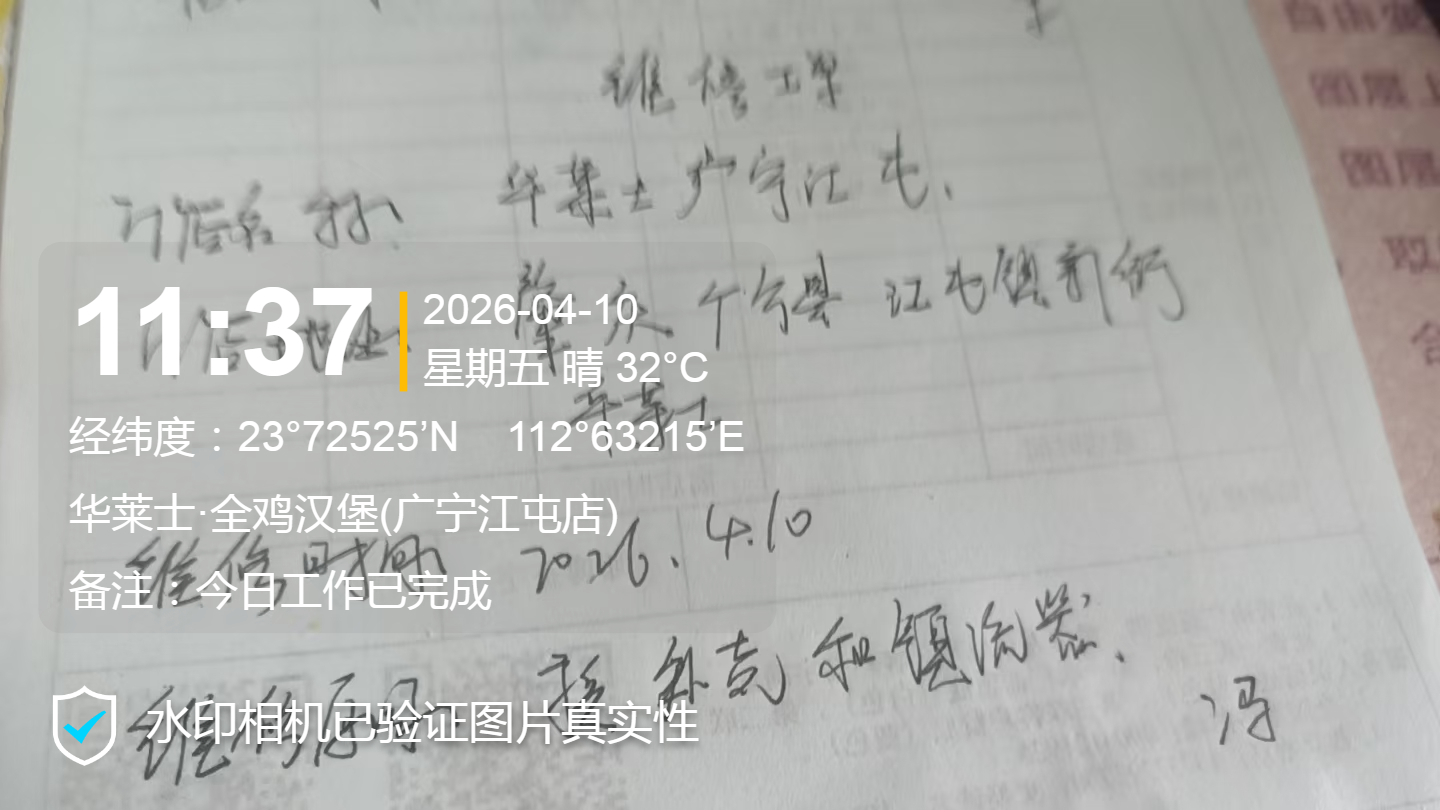 自由变
维修工单
图层上
门店名称: 华莱士广宁江屯.
图层
门店地址: 肇庆广宁县江屯镇新街
取
华莱士
11:37
2026-04-10
星期五 晴 32°C
经纬度：23°72525’N 112°63215’E
华莱士·全鸡汉堡(广宁江屯店)
维修时间 2026.4.10
备注：今日工作已完成
和镇流器.
水印相机已验证图片真实性
冯